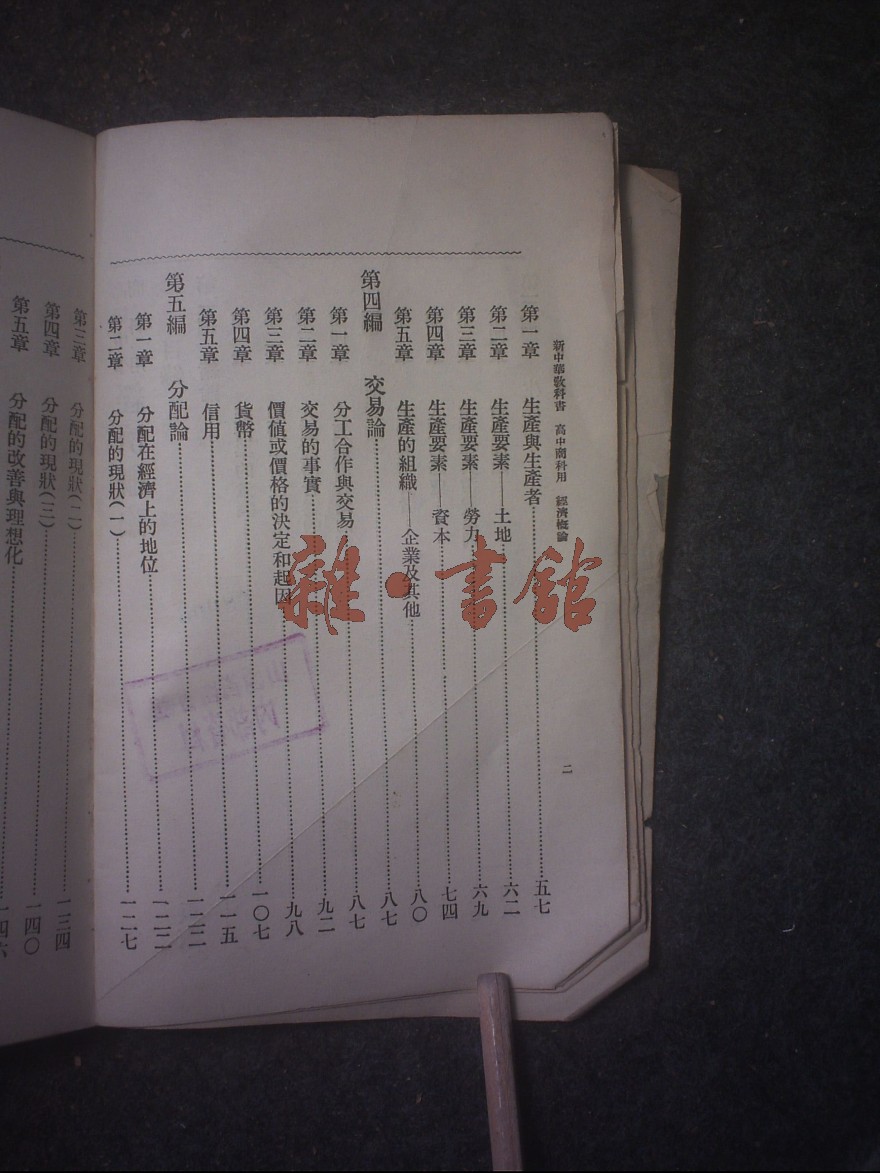 新中華教科書　高中商科用　經濟概論
二
第一章　生產與生產者……五七
第二章　生產要素——土地……六二
第三章　生產要素——勞力……六九
第四章　生產要素——資本……七四
第五章　生產的組織——企業及其他……八〇
第四編　交易論……八七
第一章　分工合作與交易……八七
第二章　交易的事實……九二
第三章　價值或價格的決定和起因……九八
第四章　貨幣……一〇七
第五章　信用……一一五
第五編　分配論……一二二
第一章　分配在經濟上的地位……一二二
第二章　分配的現狀(一)……一二七
第三章　分配的現狀(二)……一三四
第四章　分配的現狀(三)……一四〇
第五章　分配的改善與理想化……一四六
雜·書館